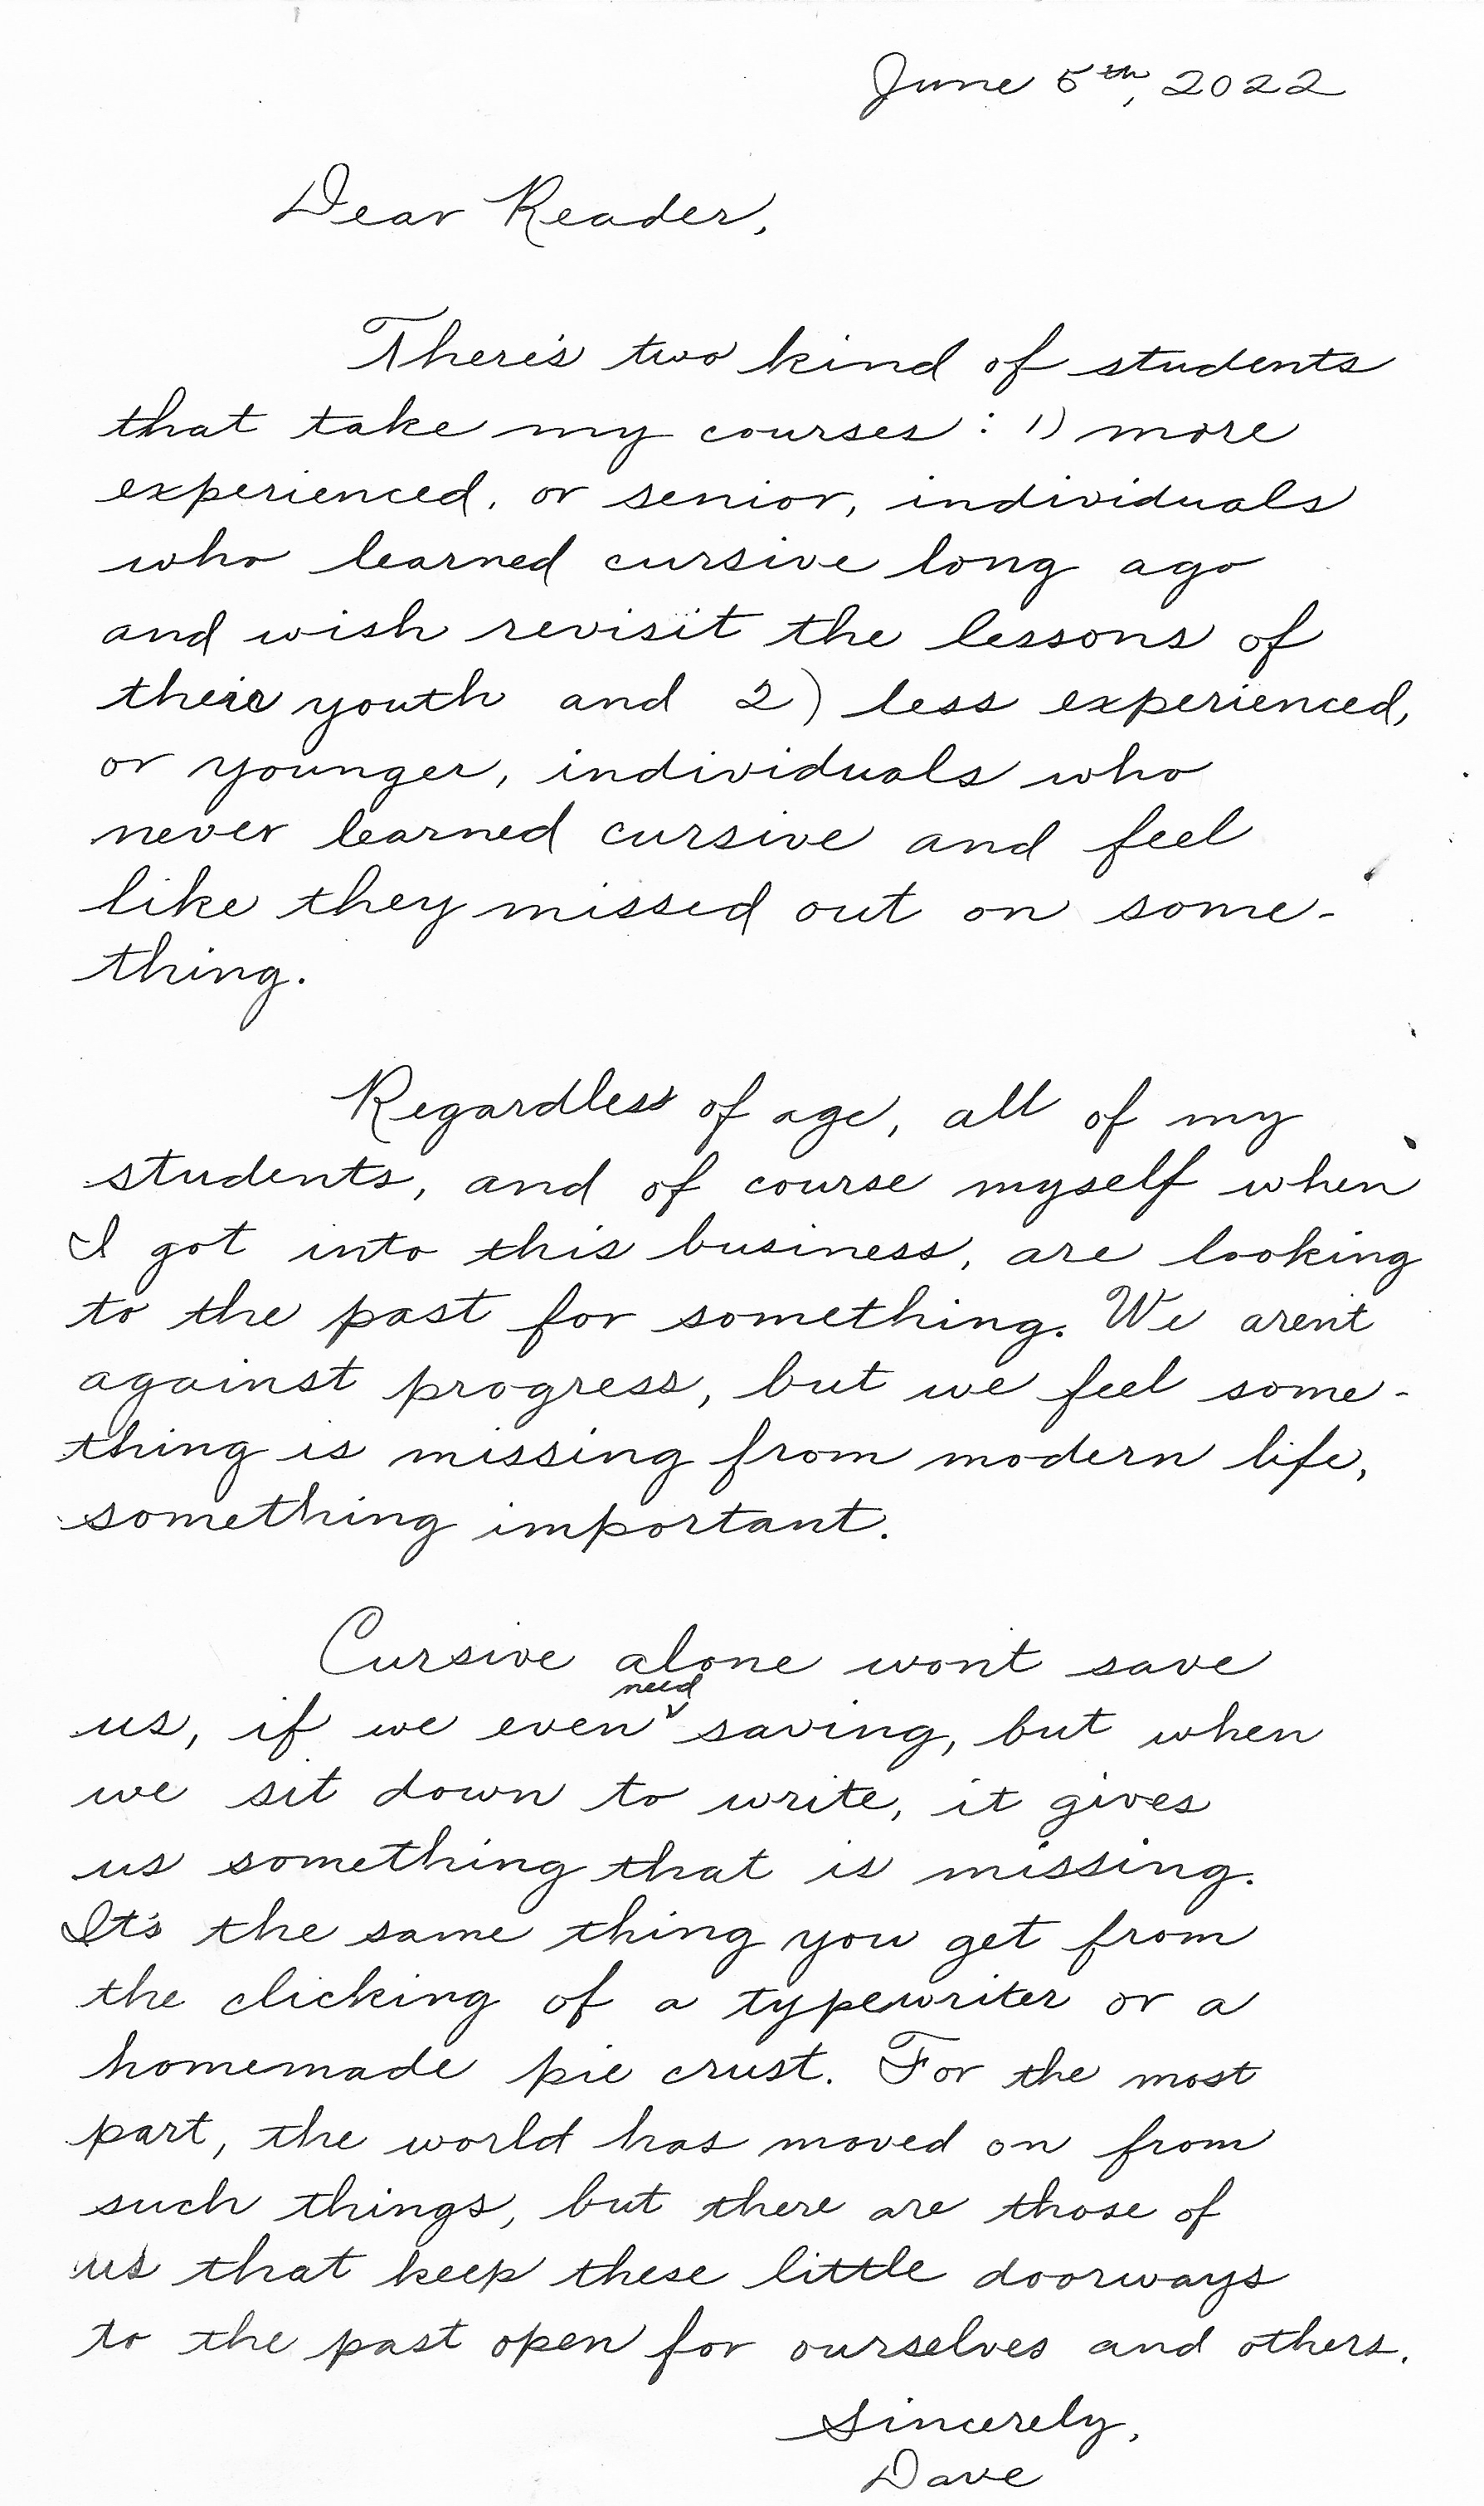 June 5th, 2022
Dear Reader,
There's two kind of students
that take my courses: 1) more
experienced, or senior, individuals
who learned cursive long ago
and wish revisit the lessons of
their youth and 2) less experienced,
or younger, individuals who
never learned cursive and feel
like they missed out on some-
thing.
Regardless of age, all of my
students, and of course myself when
I got into this business, are looking
to the past for something. We aren't
against progress, but we feel some-
thing is missing from modern life,
something important.
Cursive alone won't save
us, if we even need saving, but when
we sit down to write, it gives
us something that is missing.
It's the same thing you get from
the clicking of a typewriter or a
homemade pie crust. For the most
part, the world has moved on from
such things, but there are those of
us that keep these little doorways
to the past open for ourselves and others.
Sincerely,
Dave